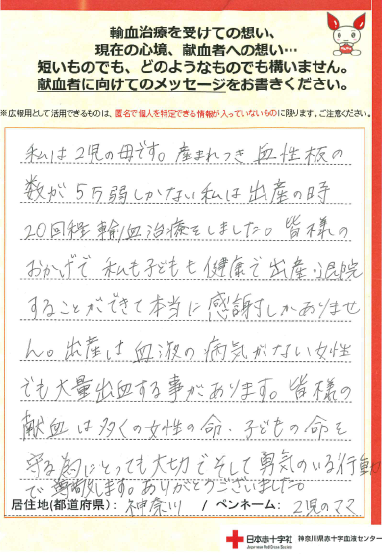 輸血治療を受けての想い、
現在の心境、献血者への想い…
短いものでも、どのようなものでも構いません。
献血者に向けてのメッセージをお書きください。
※広報用として活用できるものは、匿名で個人を特定できる情報が入っていないものに限ります。ご注意ください。
私は2児の母です。産まれつき血性板の
数が5万弱しかない私は出産の時
20回程輸血治療をしました。皆様の
おかげで私も子どもも健康で出産、退院
することができて本当に感謝しかありませ
ん。出産は血液の病気がない女性
でも大量出血する事があります。皆様の
献血は多くの女性の命、子どもの命を
守る為にとっても大切でそして勇気のいる行動
で尊敬します。ありがとうございました。
居住地(都道府県): 神奈川 / ペンネーム: 2児のママ
日本赤十字社 神奈川県赤十字血液センター
Japanese Red Cross Society